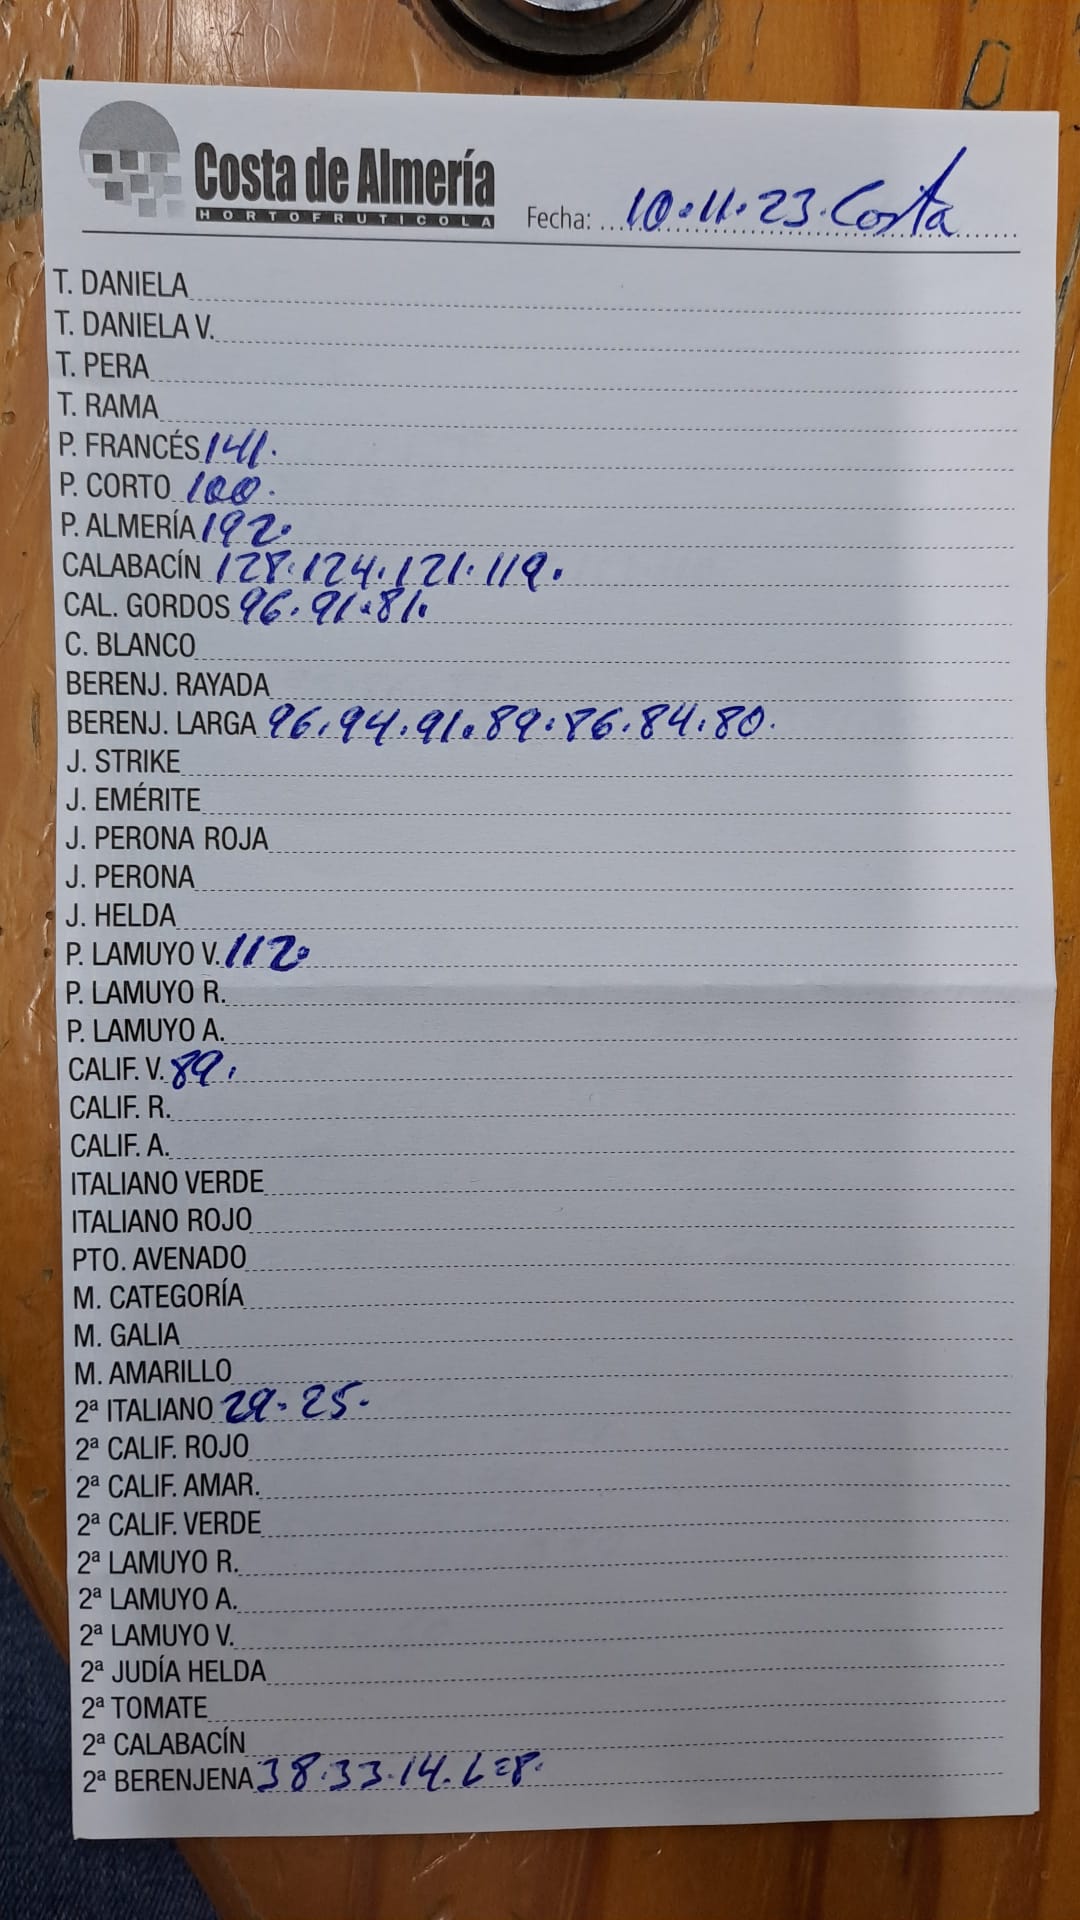 Costa de Almería
HORTOFRUTICOLA
Fecha: 10.11.23. Costa
T. DANIELA
T. DANIELA V.
T. PERA
T. RAMA
P. FRANCÉS 141.
P. CORTO 100.
P. ALMERÍA 192.
CALABACÍN 128.124.121.119.
CAL. GORDOS 96.91.81.
C. BLANCO
BERENJ. RAYADA
BERENJ. LARGA 96.94.91.89.86.84.80.
J. STRIKE
J. EMÉRITE
J. PERONA ROJA
J. PERONA
J. HELDA
P. LAMUYO V. 112.
P. LAMUYO R.
P. LAMUYO A.
CALIF. V. 89.
CALIF. R.
CALIF. A.
ITALIANO VERDE
ITALIANO ROJO
PTO. AVENADO
M. CATEGORÍA
M. GALIA
M. AMARILLO
2ª ITALIANO 29.25.
2ª CALIF. ROJO
2ª CALIF. AMAR.
2ª CALIF. VERDE
2ª LAMUYO R.
2ª LAMUYO A.
2ª LAMUYO V.
2ª JUDÍA HELDA
2ª TOMATE
2ª CALABACÍN
2ª BERENJENA 38.33.14.L=8.